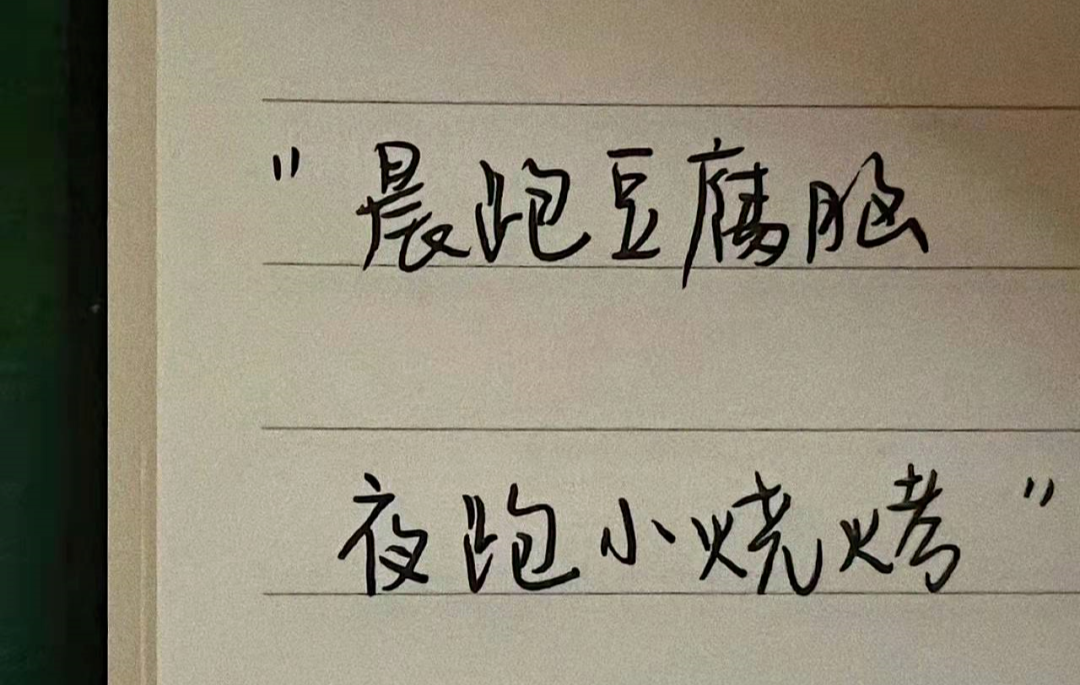 "晨跑豆腐脑
夜跑小烧烤"